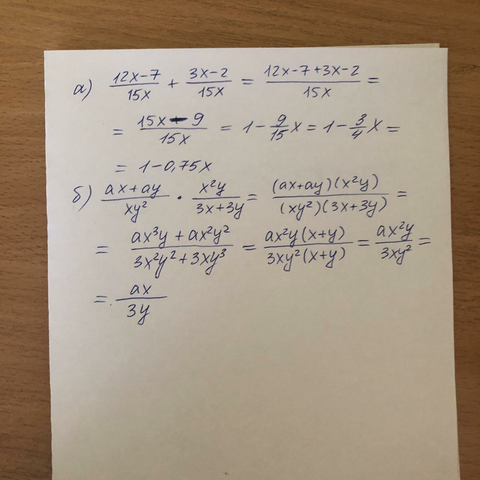 а) \frac{12x-7}{15x} + \frac{3x-2}{15x} = \frac{12x-7+3x-2}{15x} =
= \frac{15x-9}{15x} = 1-\frac{9}{15}x = 1-\frac{3}{4}x =
= 1-0,75x
б) \frac{ax+ay}{xy^2} \cdot \frac{x^2y}{3x+3y} = \frac{(ax+ay)(x^2y)}{(xy^2)(3x+3y)} =
= \frac{ax^3y+ax^2y^2}{3x^2y^2+3xy^3} = \frac{ax^2y(x+y)}{3xy^2(x+y)} = \frac{ax^2y}{3xy^2} =
= \frac{ax}{3y}